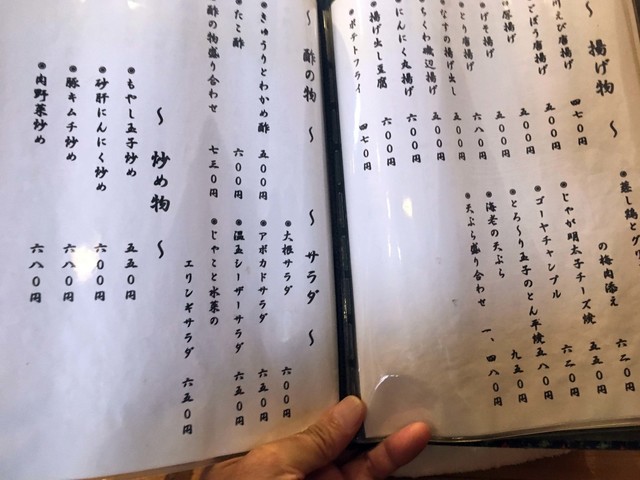 〜 揚げ物 〜
川えび唐揚げ 四七〇円
ごぼう唐揚げ 五〇〇円
唐揚げ 五五〇円
げそ揚げ 六八〇円
とり唐揚げ 五五〇円
なすの揚げ出し 五〇〇円
ちくわ磯辺揚げ 五〇〇円
◉にんにく丸揚げ 六〇〇円
◉揚げ出し豆腐 六〇〇円
◉ポテトフライ 四七〇円
◉蒸し鶏と
の梅肉添え 六二〇円
◉じゃが明太子チーズ焼 五五〇円
◉ゴーヤチャンプル 六二〇円
◉とろ〜り玉子のとん平焼 五八〇円
◉海老の天ぷら 九五〇円
◉天ぷら盛り合わせ 一、四八〇円
〜 酢の物 〜
◉きゅうりとわかめ酢 五〇〇円
◉たこ酢 六〇〇円
酢の物盛り合わせ 七三〇円
〜 サラダ 〜
◉大根サラダ 六〇〇円
◉アボカドサラダ 六五〇円
◉温玉シーザーサラダ 六五〇円
◉じゃこと水菜の
エリンギサラダ 六五〇円
〜 炒め物 〜
◉もやし玉子炒め 五五〇円
◉砂肝にんにく炒め 六〇〇円
◉豚キムチ炒め 六八〇円
◉肉野菜炒め 六八〇円